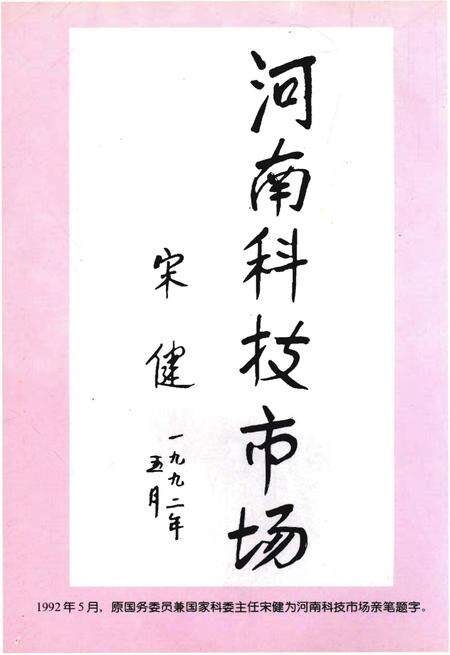 河南科技市场
宋健
一九九二年
五月
1992年5月，原国务委员兼国家科委主任宋健为河南科技市场亲笔题字。